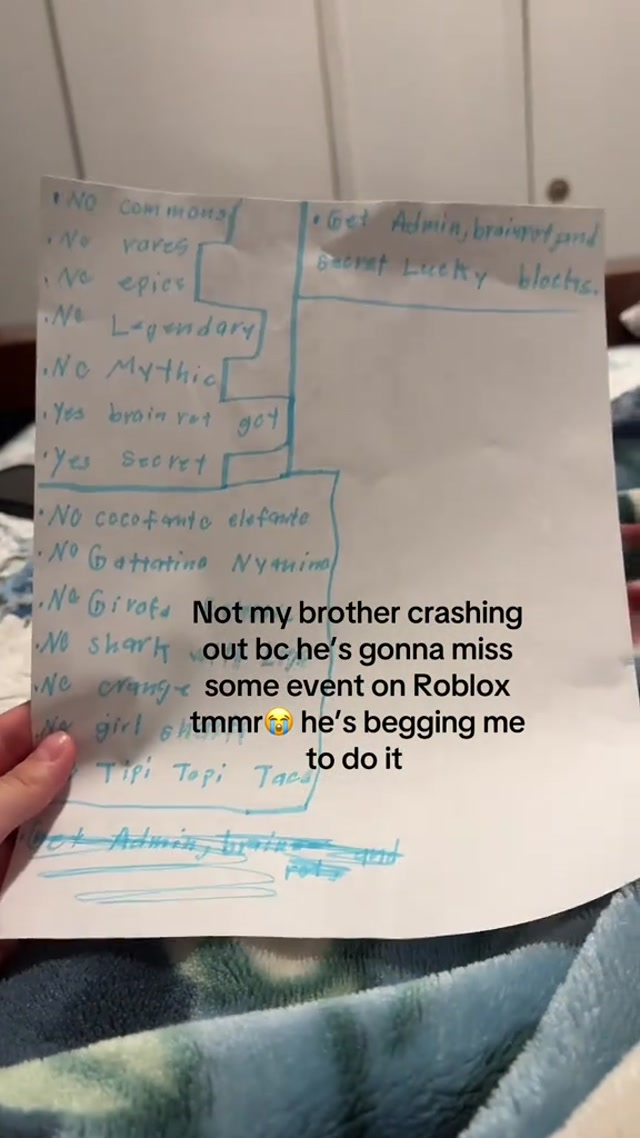 • No commons
• No rares
• No epics
• No Legendary
• No Mythic
• Yes brain rot got
• Yes Secret
• Get Admin, brainrot and
Secret Lucky blocks.
• No cocofanto elefante
• No Gattatino Nyanino
• No Girafa
• No shark
• No orange
No girl shark
Tipi Topi Taco
Get Admin, brain
rot, and
Not my brother crashing
out bc he's gonna miss
some event on Roblox
tmmr😭 he's begging me
to do it